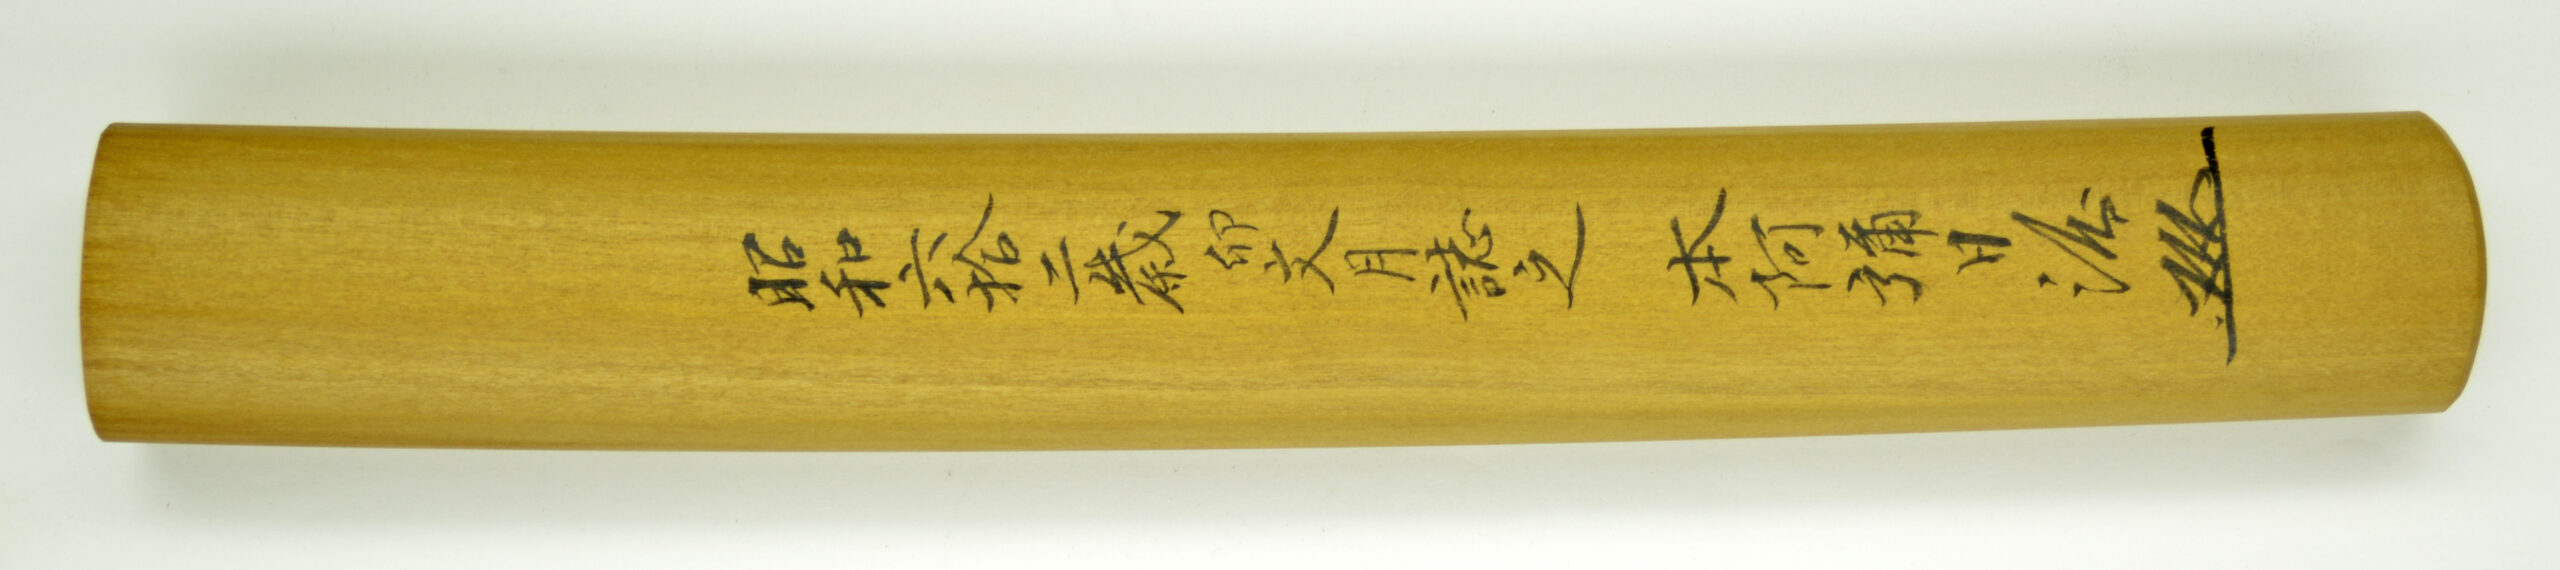 昭和六拾二歳卯文月誌之 本阿彌日洲